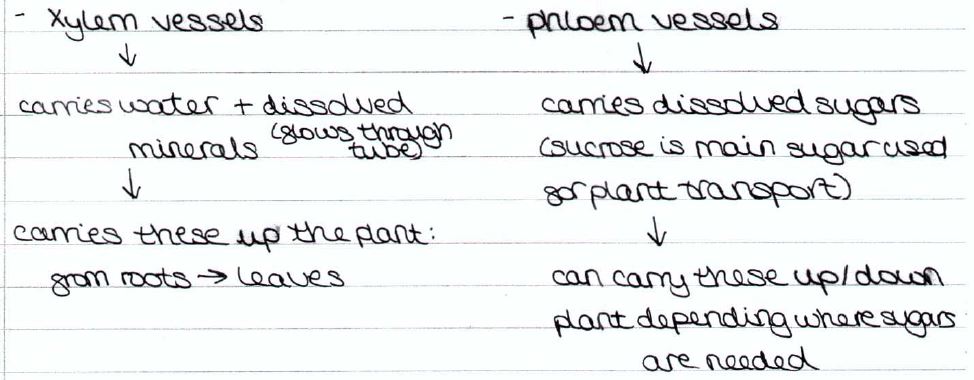 - xylem vessels
↓
carries water + dissolved
minerals (flows through
tube)
↓
carries these up the plant:
from roots → leaves
- phloem vessels
↓
carries dissolved sugars
(sucrose is main sugar used
for plant transport)
↓
can carry these up/down
plant depending where sugars
are needed